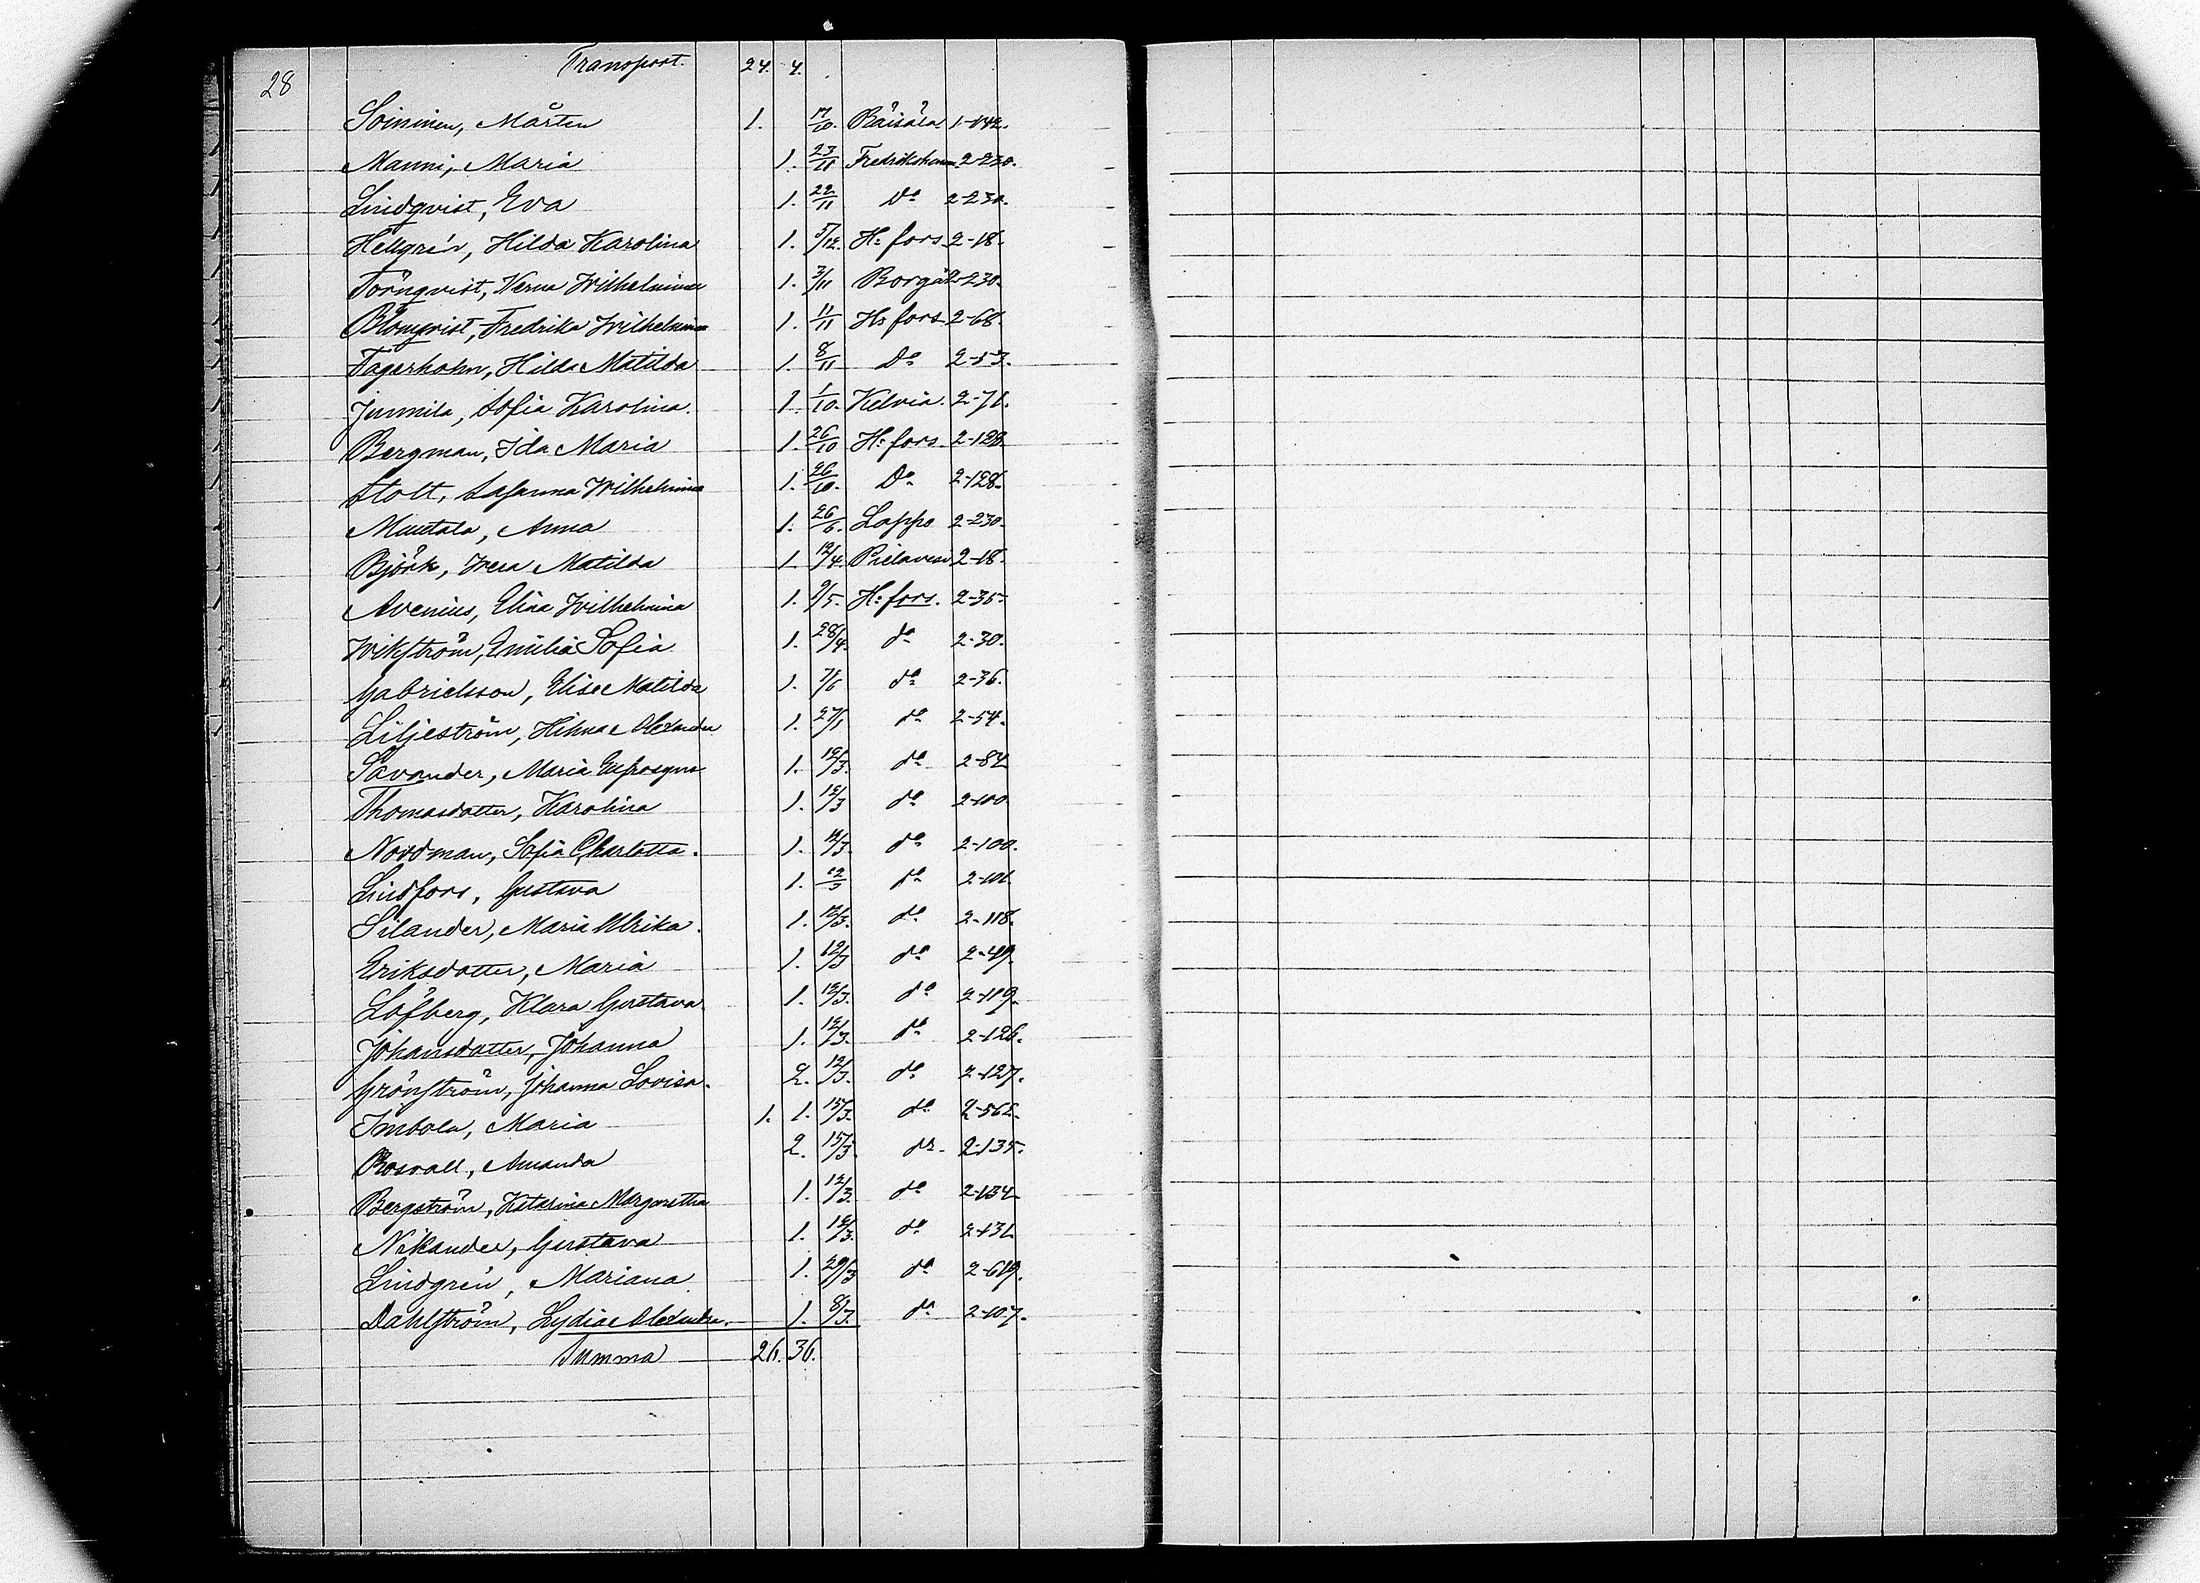 28 Transport. 24. 4.
Soininen, Mårten 1. 17/10. Räisälä 1-142.
Manni, Maria 1. 23/11 Fredrikshamn 2-230.
Lindqvist, Eva 1. 22/11 Do 2-230.
Hellgrén, Hilda Karolina 1. 5/12. H:fors 2-18.
Törnqvist, Verna Wilhelmina 1. 3/11 Borgå 2-230.
Blomqvist, Fredrika Wilhelmina 1. 11/11 H:fors 2-68.
Fagerholm, Hilda Matilda 1. 8/11 Do 2-53.
Junnila, Sofia Karolina. 1. 1/10. Kelvia. 2-71.
Bergman, Ida Maria 1. 26/10 H:fors 2-128.
Stolt, Safanna Wilhelmina 1. 26/10. Do 2-128.
Anna 1. 26/6. Lappo 2-230.
Björk, Wera Matilda 1. 12/4. Pielavesi 2-18.
Avenius, Elina Wilhelmina 1. 9/5. H:fors. 2-35.
Wikström, Emilia Sofia 1. 28/4. do 2-30.
Gabrielsson, Elise Matilda 1. 7/6 do 2-36.
Liljeström, Hilma Alexandra 1. 27/1 do 2-54.
Savander, Maria Eufrosyne 1. 12/3. do 2-82
Thomasdotter, Karolina 1. 12/3 do 2-100
Nordman, Sofia Charlotta. 1. 12/3. do 2-100.
Lindfors, Gustava 1. 12/3 do 2-101.
Silander, Maria Ulrika. 1. 12/3. do 2-118.
Eriksdotter, Maria 1. 12/3 do 2-119.
Löfberg, Klara Gustava. 1. 12/3. do 2-119.
Johansdotter, Johanna 1. 12/3. do 2-126.
Grönström, Johanna Lovisa. 2. 12/3. do 2-127.
Imbola, Maria 1. 1. 15/3. do 2-565.
Rosvall, Amanda 2. 15/3. do 2-135.
Bergström, Katarina Margaretha 1. 12/3. do 2-134
Nikander, Gustava 1. 12/3. do 2-131
Lindgrén, Mariana 1. 29/3 do 2-619.
Dahlström, Lydia Alexandra. 1. 8/3. do 2-107.
Summa 26. 36.